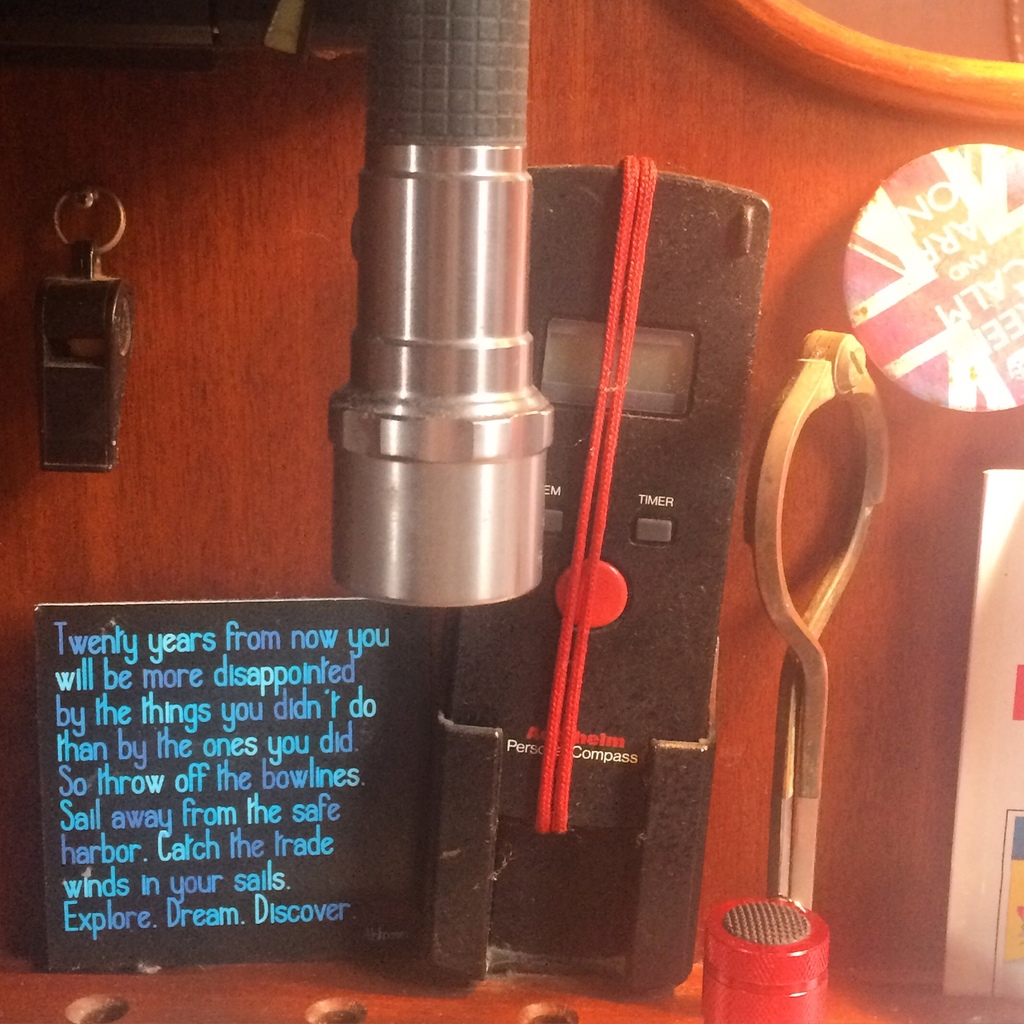 Twenty years from now you
will be more disappointed
by the things you didn't do
than by the ones you did.
So throw off the bowlines.
Sail away from the safe
harbor. Catch the trade
winds in your sails.
Explore. Dream. Discover.
EM
TIMER
Compass
KEEP
CALM
AND
CARRY
ON